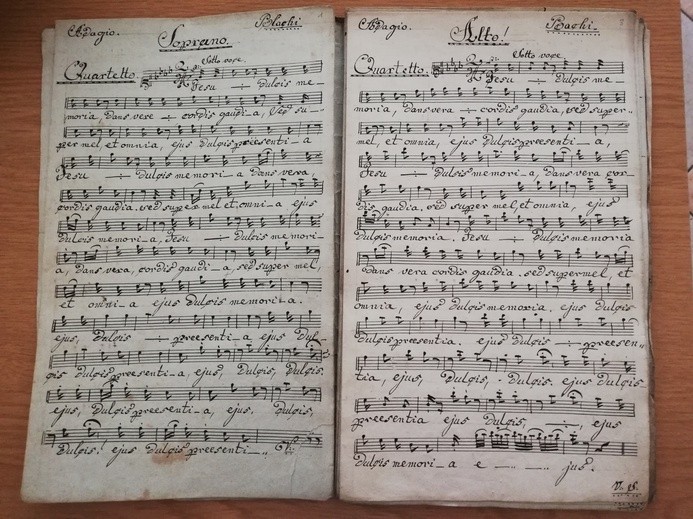 Adagio.
Soprano.
Blaohi.
1
Sotto voce.
Quartetto.
Jesu ÷ Dulgis me_
moria, Dans vere ÷ cordis gaudi_a, Sed su_
per mel, et omnia, ejus Dulgis presenti_a
Jesu ÷ Dulgis memori_a Dans vera,
cordis gaudia. sed super mel, et omni_a ejus
Dulgis memori_a, Jesu ÷ Dulgis memori_
a, Dans vera, cordis gaudi_a, sed super mel,
et omni_a ejus Dulgis memori_a.
ejus, Dulgis ÷ preesenti_a ejus Dul_
gis Dulgis preesenti_a, ejus, Dulgis, Dulgis,
ejus, Dulgis preesenti_a, ejus, Dulgis,
Dulgis! ejus Dulgis preesenti_
Adagio.
Alto!
Blaohi.
3
Sotto voce
Quartetto.
Jesu ÷ Dulgis me_
moria, Dans vera ÷ cordis gaudia, sed super_
mel, et omnia, ejus Dulgis presenti_a,
Jesu ÷ Dulsis memori_a, Dans vera cor_
dis gaudia. sed super mel, et omnia, ejus
Dulgis memoria. Jesu ÷ Dulgis memoria
Dans vera cordis gaudia. sed super mel, et
omnia, ejus Dulgis memoria. ejus Dulgis
Dulgis presentia. ejus Dulgis ÷ preesen_
tia, ejus, Dulgis, Dulgis. ejus Dulgis
preesentia ejus Dulgis, ÷, ejus
Dulgis memori_a e_ _ _ jus.
V. S.